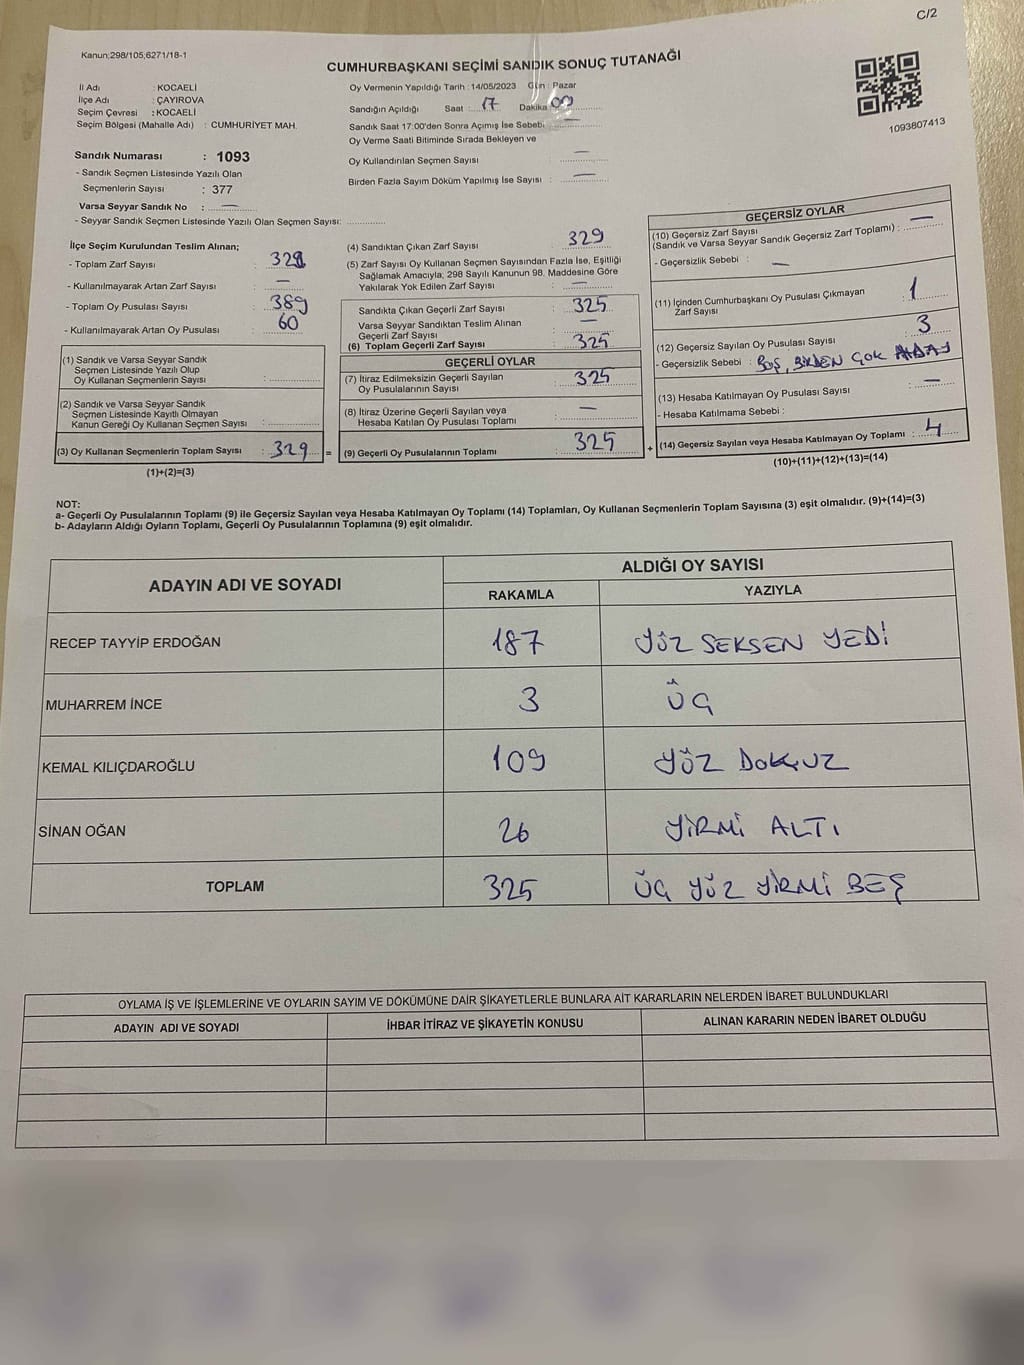 C/2
Kanun;298/105;6271/18-1
CUMHURBAŞKANI SEÇİMİ SANDIK SONUÇ TUTANAĞI
İl Adı : KOCAELİ
İlçe Adı : ÇAYIROVA
Seçim Çevresi : KOCAELİ
Seçim Bölgesi (Mahalle Adı) : CUMHURİYET MAH.
Sandık Numarası : 1093
- Sandık Seçmen Listesinde Yazılı Olan
Seçmenlerin Sayısı : 377
Varsa Seyyar Sandık No : —
- Seyyar Sandık Seçmen Listesinde Yazılı Olan Seçmen Sayısı: ............
Oy Vermenin Yapıldığı Tarih : 14/05/2023 Gün : Pazar
Sandığın Açıldığı Saat : 17 Dakika 00
Sandık Saat 17:00'den Sonra Açımış İse Sebebi : —
Oy Verme Saati Bitiminde Sırada Bekleyen ve
Oy Kullandırılan Seçmen Sayısı —
Birden Fazla Sayım Döküm Yapılmış İse Sayısı : —
1093807413
İlçe Seçim Kurulundan Teslim Alınan;
- Toplam Zarf Sayısı : 329
- Kullanılmayarak Artan Zarf Sayısı : —
- Toplam Oy Pusulası Sayısı : 389
- Kullanılmayarak Artan Oy Pusulası : 60
(1) Sandık ve Varsa Seyyar Sandık
Seçmen Listesinde Yazılı Olup
Oy Kullanan Seçmenlerin Sayısı : ............
(2) Sandık ve Varsa Seyyar Sandık
Seçmen Listesinde Kayıtlı Olmayan
Kanun Gereği Oy Kullanan Seçmen Sayısı : ............
(3) Oy Kullanan Seçmenlerin Toplam Sayısı : 329 =
(1)+(2)=(3)
(4) Sandıktan Çıkan Zarf Sayısı : 329
(5) Zarf Sayısı Oy Kullanan Seçmen Sayısından Fazla İse, Eşitliği
Sağlamak Amacıyla; 298 Sayılı Kanunun 98. Maddesine Göre
Yakılarak Yok Edilen Zarf Sayısı : —
Sandıkta Çıkan Geçerli Zarf Sayısı : 325
Varsa Seyyar Sandıktan Teslim Alınan
Geçerli Zarf Sayısı : —
(6) Toplam Geçerli Zarf Sayısı : 325
GEÇERLİ OYLAR
(7) İtiraz Edilmeksizin Geçerli Sayılan
Oy Pusulalarının Sayısı : 325
(8) İtiraz Üzerine Geçerli Sayılan veya
Hesaba Katılan Oy Pusulası Toplamı : —
(9) Geçerli Oy Pusulalarının Toplamı : 325 +
GEÇERSİZ OYLAR
(10) Geçersiz Zarf Sayısı
(Sandık ve Varsa Seyyar Sandık Geçersiz Zarf Toplamı) : —
- Geçersizlik Sebebi : —
(11) İçinden Cumhurbaşkanı Oy Pusulası Çıkmayan
Zarf Sayısı : 1
(12) Geçersiz Sayılan Oy Pusulası Sayısı : 3
- Geçersizlik Sebebi : BOŞ, BİRDEN ÇOK ADAY
(13) Hesaba Katılmayan Oy Pusulası Sayısı : —
- Hesaba Katılmama Sebebi :
(14) Geçersiz Sayılan veya Hesaba Katılmayan Oy Toplamı : 4
(10)+(11)+(12)+(13)=(14)
NOT:
a- Geçerli Oy Pusulalarının Toplamı (9) ile Geçersiz Sayılan veya Hesaba Katılmayan Oy Toplamı (14) Toplamları, Oy Kullanan Seçmenlerin Toplam Sayısına (3) eşit olmalıdır. (9)+(14)=(3)
b- Adayların Aldığı Oyların Toplamı, Geçerli Oy Pusulalarının Toplamına (9) eşit olmalıdır.
ADAYIN ADI VE SOYADI ALDIĞI OY SAYISI
RAKAMLA YAZIYLA
RECEP TAYYİP ERDOĞAN 187 YÜZ SEKSEN YEDİ
MUHARREM İNCE 3 ÜÇ
KEMAL KILIÇDAROĞLU 109 YÜZ DOKUZ
SİNAN OĞAN 26 YİRMİ ALTI
TOPLAM 325 ÜÇ YÜZ YİRMİ BEŞ
OYLAMA İŞ VE İŞLEMLERİNE VE OYLARIN SAYIM VE DÖKÜMÜNE DAİR ŞİKAYETLERLE BUNLARA AİT KARARLARIN NELERDEN İBARET BULUNDUKLARI
ADAYIN ADI VE SOYADI İHBAR İTİRAZ VE ŞİKAYETİN KONUSU ALINAN KARARIN NEDEN İBARET OLDUĞU